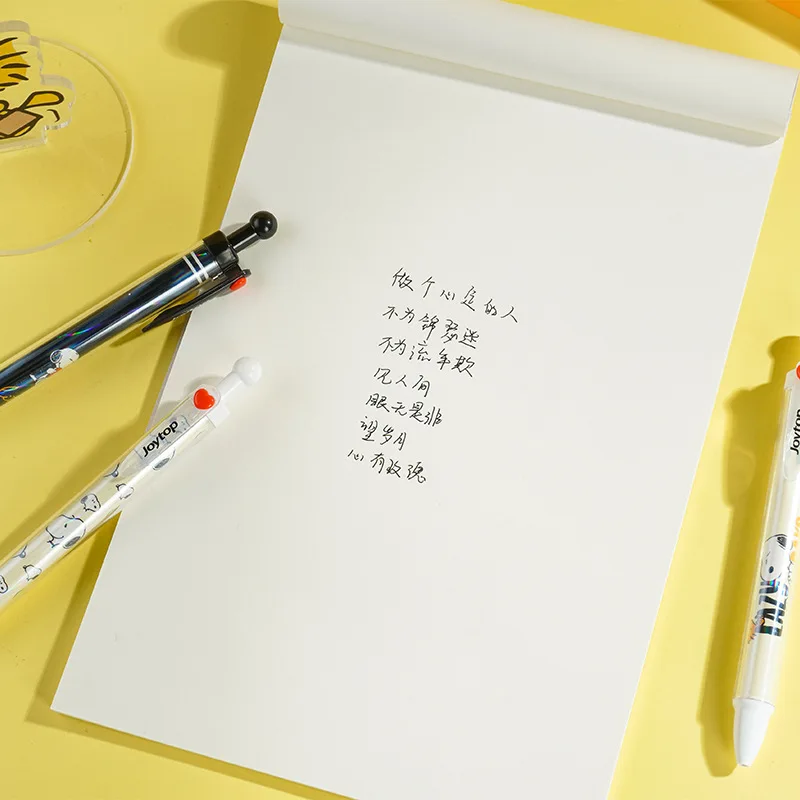 做个心定的人
不为锦瑟迷
不为流年欺
见人间
眼无是非
望岁月
心有玫瑰
Joytop
Joytop
LAZY